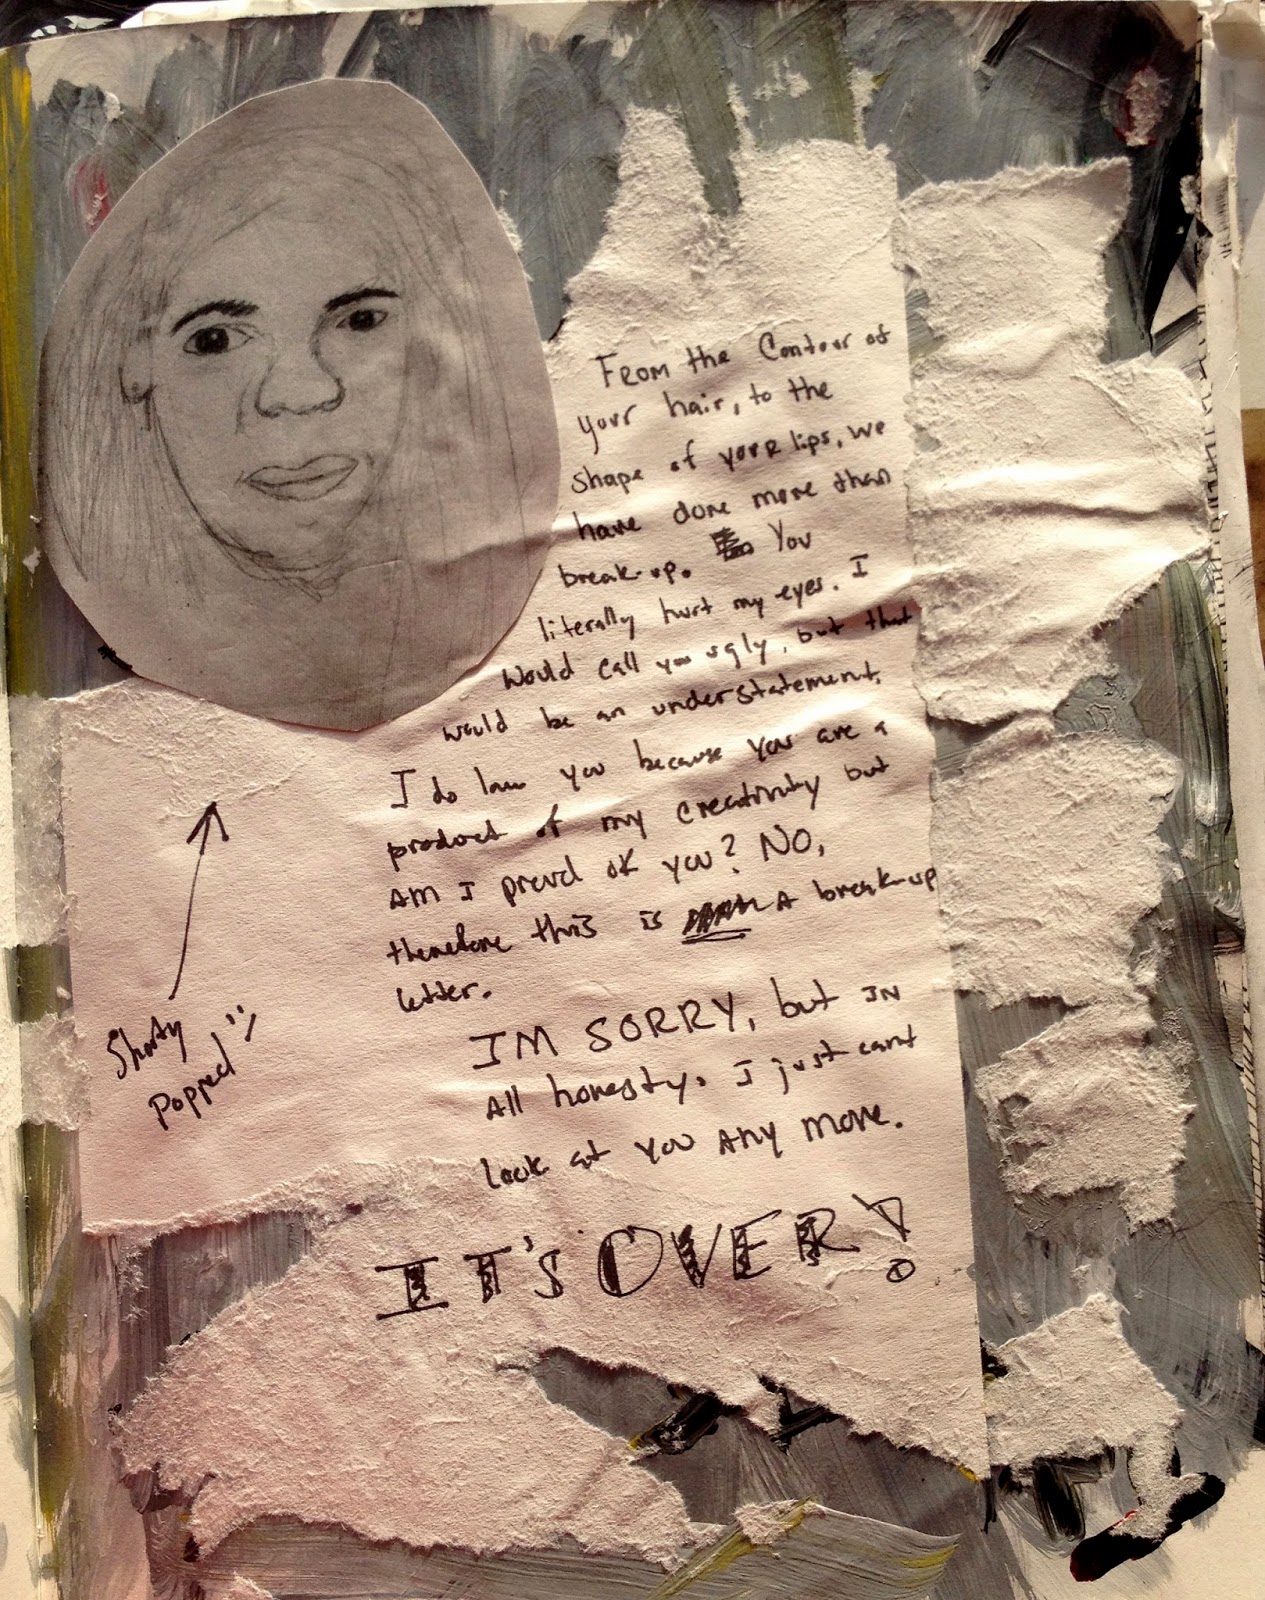 From the Contour of
your hair, to the
shape of your lips, we
have done more than
break-up. You
literally hurt my eyes. I
would call you ugly, but that
would be an understatement,
I do love you because you are a
product of my creativity but
Am I proud of you? No,
therefore this is A break-up
letter.
IM SORRY, but IN
All honesty. I just cant
look at you Any more.
IT'S OVER!
popped